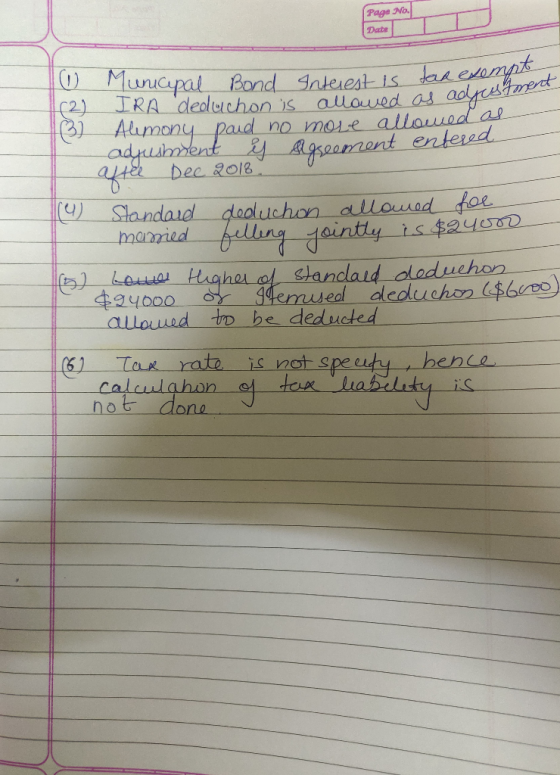 Page No.
Date
(1) Municipal Bond Interest is tax exempt
(2) IRA deduction is allowed as adjustment
(3) Alimony paid no more allowed as
adjusment if Agreement entered
after Dec 2018.
(4) Standard deduction allowed for
married filling jointly is $24000
(5) Lower Higher of standard deduction
$24000 or Itemised deduction ($6000)
allowed to be deducted
(6) Tax rate is not specify, hence
calculation of tax liability is
not done